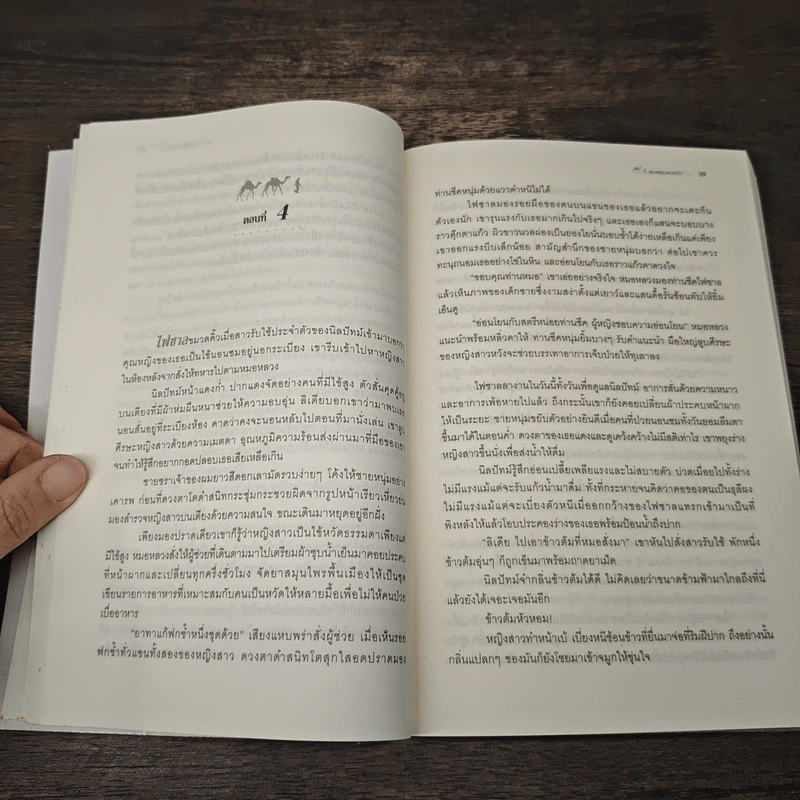 ตอนที่ 4
ไฟซาลขมวดคิ้วเมื่อสาวรับใช้ประจำตัวของนิลปัทม์เข้ามาบอกว่า
คุณหญิงของเธอเป็นไข้นอนซมอยู่นอกระเบียง เขารีบเข้าไปหาหญิงสาว
ในห้องหลังจากสั่งให้ทหารไปตามหมอหลวง
นิลปัทม์หน้าแดงก่ำ ปากแดงจัดอย่างคนที่มีไข้สูง ตัวสั่นคุดคู้อยู่
บนเตียงที่มีผ้าห่มผืนหนาช่วยให้ความอบอุ่น ลิเดียบอกเขาว่ามาพบเธอ
นอนสั่นอยู่ที่ระเบียงห้อง คาดว่าคงจะนอนหลับไปตอนที่มานั่งเล่น เขาลูบ
ศีรษะหญิงสาวด้วยความเมตตา อุณหภูมิความร้อนส่งผ่านมาที่มือของเขา
จนทำให้รู้สึกอยากกอดปลอบเธอเสียเหลือเกิน
ชายชราเจ้าของผมยาวสีดอกเลามัดรวบง่ายๆ โค้งให้ชายหนุ่มอย่าง
เคารพ ก่อนที่ดวงตาโตดำสนิทกระชุ่มกระชวยผิดจากรูปหน้าเรียวเหี่ยวย่น
มองสำรวจหญิงสาวบนเตียงด้วยความสนใจ ขณะเดินมาหยุดอยู่อีกฝั่ง
เพียงมองปราดเดียวเขาก็รู้ว่าหญิงสาวเป็นไข้หวัดธรรมดาเพียงแต่
มีไข้สูง หมอหลวงสั่งให้ผู้ช่วยที่เดินตามมาไปเตรียมผ้าชุบน้ำเย็นมาคอยประคบ
ที่หน้าผากและเปลี่ยนทุกครึ่งชั่วโมง จัดยาสมุนไพรพื้นเมืองให้เป็นชุด
เขียนรายการอาหารที่เหมาะสมกับคนเป็นหวัดให้หลายมื้อเพื่อไม่ให้คนป่วย
เบื่ออาหาร
"ยาทาแก้ฟกช้ำหนึ่งชุดด้วย" เสียงแหบพร่าสั่งผู้ช่วย เมื่อเห็นรอย
ฟกช้ำทั่วแขนทั้งสองของหญิงสาว ดวงตาดำสนิทโตสุกใสอดปราดมอง
19
ท่านชีคหนุ่มด้วยแววตำหนิไม่ได้
ไฟซาลมองรอยมือของตนบนแขนของเธอแล้วอยากจะเตะก้น
ตัวเองนัก เขารุนแรงกับเธอมากเกินไปจริงๆ และเธอเองก็แสนจะบอบบาง
ราวตุ๊กตาแก้ว ผิวขาวนวลผ่องเป็นยองใยนั่นบอบช้ำได้ง่ายเหลือเกินแค่เพียง
เขาออกแรงบีบเล็กน้อย สามัญสำนึกของชายหนุ่มบอกว่า ต่อไปเขาควร
ทะนุถนอมเธออย่างไข่ในหิน และอ่อนโยนกับเธอราวแก้วตาดวงใจ
"ขอบคุณท่านหมอ" เขาเอ่ยอย่างจริงใจ หมอหลวงมองท่านชีคไฟซาล
แล้วเห็นภาพของเด็กชายซึ่งงามสง่าตั้งแต่เยาว์และแสนดื้อรั้นซ้อนทับให้ยิ้ม
เอ็นดู
"อ่อนโยนกับสตรีหน่อยท่านชีค ผู้หญิงชอบความอ่อนโยน" หมอหลวง
แนะนำพร้อมหลิ่วตาให้ ท่านชีคหนุ่มยิ้มบางๆ รับคำแนะนำ มือใหญ่ลูบศีรษะ
ของหญิงสาวหวังจะช่วยบรรเทาอาการเจ็บป่วยให้ทุเลาลง
ไฟซาลลางานในวันนี้ทั้งวันเพื่อดูแลนิลปัทม์ อาการสั่นด้วยความหนาว
และอาการเพ้อหายไปแล้ว ถึงกระนั้นเขาก็ยังคอยเปลี่ยนผ้าประคบหน้าผาก
ให้เป็นระยะ ชายหนุ่มขยับตัวอย่างยินดีเมื่อคนที่ป่วยนอนซมทั้งวันยอมลืมตา
ขึ้นมาได้ในตอนค่ำ ดวงตาของเธอแดงและดูเคว้งคว้างไม่มีสติเท่าไร เขาพยุงร่าง
หญิงสาวขึ้นนั่งเพื่อส่งน้ำให้ดื่ม
นิลปัทม์รู้สึกอ่อนเปลี้ยเพลียแรงและไม่สบายตัว ปวดเมื่อยไปทั้งร่าง
ไม่มีแรงแม้แต่จะรับแก้วน้ำมาดื่ม ทั้งที่กระหายจนคิดว่าคอของตนเป็นธุลีผง
ไม่มีแรงแม้แต่จะเบี่ยงตัวหนีเมื่ออกกว้างของไฟซาลแทรกเข้ามาเป็นที่
พิงหลังให้แล้วโอบประคองร่างของเธอพร้อมป้อนน้ำถึงปาก
"ลิเดีย ไปเอาข้าวต้มที่หมอสั่งมา" เขาหันไปสั่งสาวรับใช้ พักหนึ่ง
ข้าวต้มอุ่นๆ ก็ถูกเข็นมาพร้อมถาดยาเม็ด
นิลปัทม์จำกลิ่นข้าวต้มได้ดี ไม่คิดเลยว่าขนาดข้ามฟ้ามาไกลถึงที่นี่
แล้วยังได้เจอะเจอมันอีก
ข้าวต้มหัวหอม!
หญิงสาวทำหน้าเบ้ เบี่ยงหนีช้อนข้าวที่ยื่นมาจ่อที่ริมฝีปาก ถึงอย่างนั้น
กลิ่นแปลกๆ ของมันก็ยังโชยมาเข้าจมูกให้ขุ่นใจ